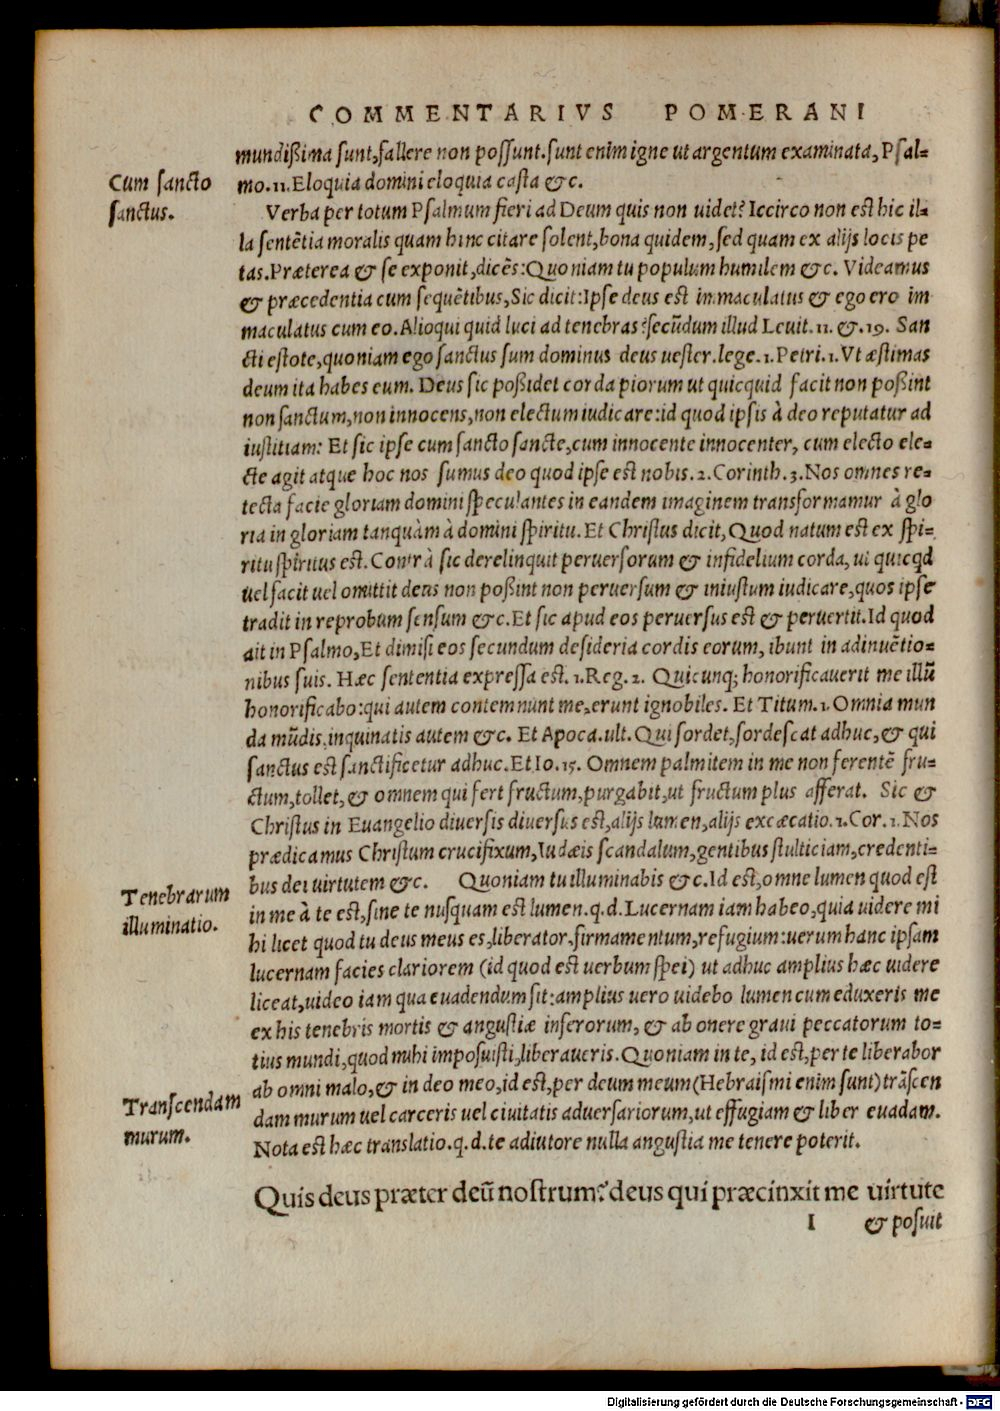 COMMENTARIVS POMERANI
mundißima ſunt, fallere non poſſunt. ſunt enim igne ut argentum examinata, Pſal=
mo. 11. Eloquia domini eloquia caſta &c.
Cum ſancto
ſanctus.
Verba per totum Pſalmum fieri ad Deum quis non uidet? Iccirco non est hic il=
la ſentẽtia moralis quam hinc citare ſolent, bona quidem, ſed quam ex alijs locis pe
tas. Præterea & ſe exponit, dicẽs: Quoniam tu populum humilem &c. Videamus
& præcedentia cum ſequẽtibus, Sic dicit: Ipſe deus est immaculatus & ego ero im
maculatus cum eo. Alioqui quid luci ad tenebras? ſecũdum illud Leuit. 11. &. 19. San
cti eſtote, quoniam ego ſanctus ſum dominus deus ueſter. lege. 1. Petri. 1. Vt æſtimas
deum ita habes eum. Deus ſic poßidet corda piorum ut quicquid facit non poßint
non ſanctum, non innocens, non electum iudicare: id quod ipſis à deo reputatur ad
iuſtitiam: Et ſic ipſe cum ſancto ſancte, cum innocente innocenter, cum electo ele=
cte agit atque hoc nos ſumus deo quod ipſe est nobis. 2. Corinth. 3. Nos omnes re=
tecta facie gloriam domini ſpeculantes in eandem imaginem transformamur à glo
ria in gloriam tanquàm à domini ſpiritu. Et Chriſtus dicit, Quod natum est ex ſpi=
ritu ſpiritus est. Contrà ſic derelinquit peruerſorum & infidelium corda, ut quicqd
uel facit uel omittit deus non poßint non peruerſum & iniuſtum iudicare, quos ipſe
tradit in reprobum ſenſum &c. Et ſic apud eos peruerſus est & peruertit. Id quod
ait in Pſalmo, Et dimiſi eos ſecundum deſideria cordis eorum, ibunt in adinuẽtio=
nibus ſuis. Hæc ſententia expreſſa est. 1. Reg. 2. Quicunq; honorificauerit me illũ
honorificabo: qui autem contemnunt me, erunt ignobiles. Et Titum. 1. Omnia mun
da mũdis, inquinatis autem &c. Et Apoca. ult. Qui ſordet, ſordeſcat adhuc, & qui
ſanctus est ſanctificetur adhuc. Et Io. 15. Omnem palmitem in me non ferentẽ fru=
ctum, tollet, & omnem qui fert fructum, purgabit, ut fructum plus afferat. Sic &
Chriſtus in Euangelio diuerſis diuerſus est, alijs lumen, alijs excæcatio. 1. Cor. 1. Nos
prædicamus Chriſtum crucifixum, Iudæis ſcandalum, gentibus ſtulticiam, credenti=
bus dei uirtutem &c. Quoniam tu illuminabis &c. Id est, omne lumen quod est
Tenebrarum
illuminatio.
in me à te est, ſine te nuſquam est lumen. q. d. Lucernam iam habeo, quia uidere mi
hi licet quod tu deus meus es, liberator, firmamentum, refugium: uerum hanc ipſam
lucernam facies clariorem (id quod est uerbum ſpei) ut adhuc amplius hæc uidere
liceat, uideo iam qua euadendum ſit: amplius uero uidebo lumen cum eduxeris me
ex his tenebris mortis & anguſtiæ inferorum, & ab onere graui peccatorum to=
tius mundi, quod mihi impoſuiſti, liberaueris. Quoniam in te, id est, per te liberabor
ab omni malo, & in deo meo, id est, per deum meum (Hebraiſmi enim ſunt) trãſcen
Tranſcendam
murum.
dam murum uel carceris uel ciuitatis aduerſariorum, ut effugiam & liber euadam.
Nota est hæc translatio. q. d. te adiutore nulla anguſtia me tenere poterit.
Quis deus præter deũ noſtrum? deus qui præcinxit me uirtute
I & poſuit
Digitalisierung gefördert durch die Deutsche Forschungsgemeinschaft - DFG